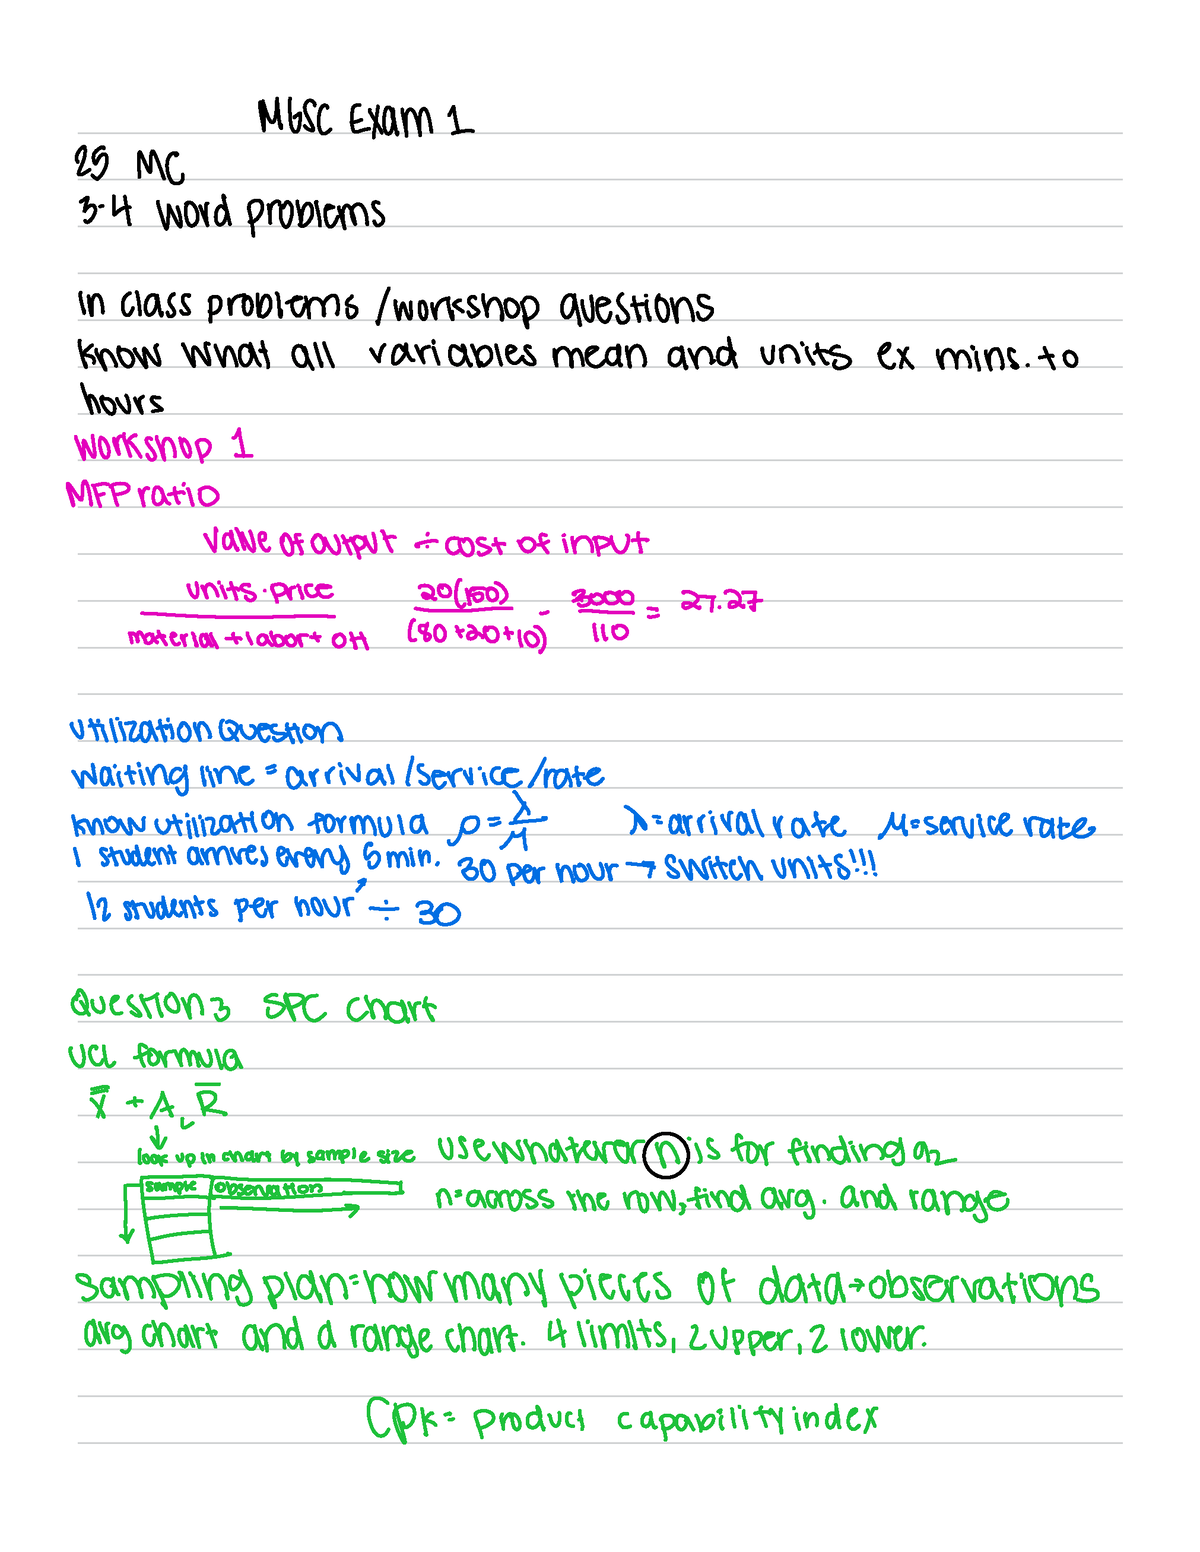 MGSC Exam 1
25 MC
3-4 word problems
In class problems /workshop questions
Know what all variables mean and units ex mins. to
hours
Workshop 1
MFP ratio
Value of output ÷ cost of input
units · price
material + labor + OH
20(150)
(80 +20+10)
-
3000
110
= 27.27
Utilization Question
Waiting line = arrival /service /rate
Know utilization formula ρ = λ/μ λ = arrival rate μ = service rate
1 student arrives every 5 min. 30 per hour → switch units!!!
12 students per hour ÷ 30
Question 3 SPC Chart
UCL formula
X̿ + A₂ R̅
look up in chart by sample size
use whatever n is for finding a2
sample observation
n=across the row, find avg. and range
Sampling plan=how many pieces of data→observations
avg chart and a range chart. 4 limits, 2 upper, 2 lower.
Cpk= product capability index